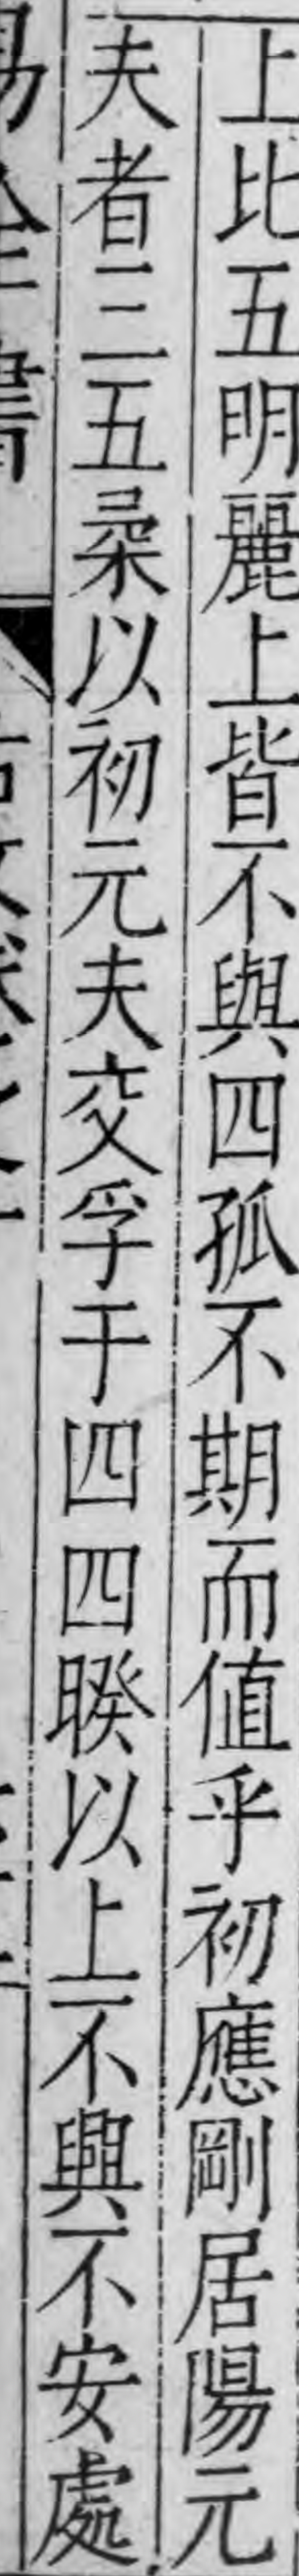 上比五明麗上皆不與四孤不期而值乎初應剛居陽元
夫者三五桑以初元夫交孚于四四睽以上不與不安處